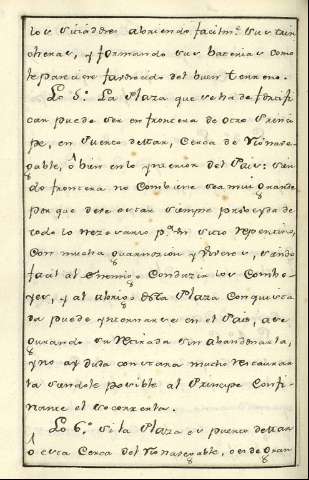 los sitiadores abriendo facilmte. sus trin
cheras, y formando sus baterias como
le pareciere favorecido del buen terreno.
Lo 5.º La Plaza que se ha de fortifi
car puede ser en frontera de otro Princi
pe, en Puerto de Mar, cerca de Rio nave
gable, ô bien en lo ynterior del Pais: sien
do frontera no combiene sea muy grande
porque deve estar siempre probeyda de
todo lo nezesario pª. un sitio repentino,
con mucha guarnicion y viveres, siendo
facil al enemigo conduzir los combo-
yes, y al abrigo desta Plaza conquista
da puede ynternarse en el Pais, ase
gurando su retirada sin abandonarla,
y no ay duda constara mucho restaurar
la siendole posible al Principe confi-
nante el socorrerla.
Lo 6.º si la Plaza es puerto de mar
o esta cerca del Rio navegable, o es de gran